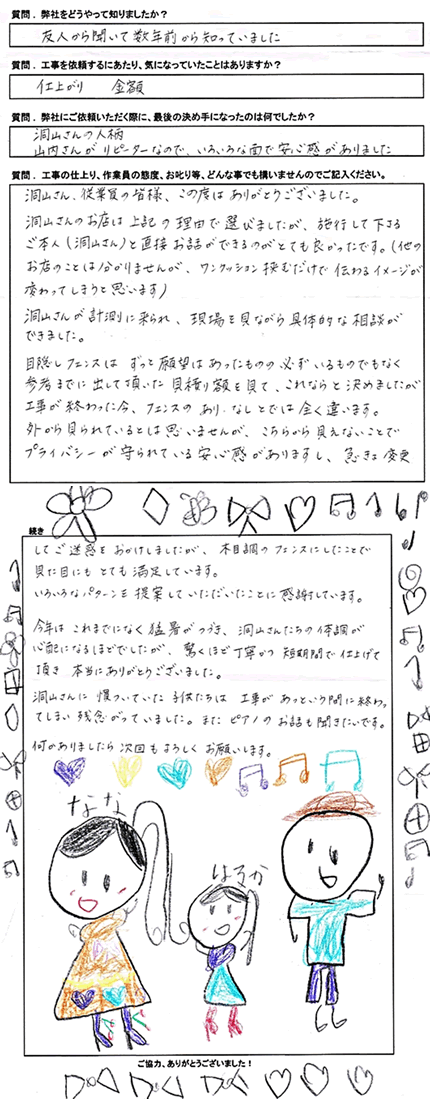 質問．弊社をどうやって知りましたか？
友人から聞いて数年前から知っていました
質問．工事を依頼するにあたり、気になっていたことはありますか？
仕上がり　金額
質問．弊社にご依頼いただく際に、最後の決め手になったのは何でしたか？
洞山さんの人柄
山内さんがリピーターなので、いろいろな面で安心感がありました
質問．工事の仕上り、作業員の態度、お叱り等、どんな事でも構いませんのでご記入ください。
洞山さん、従業員の皆様、この度はありがとうございました。
洞山さんのお店は上記の理由で選びましたが、施行して下さる
ご本人（洞山さん）と直接お話ができるのがとても良かったです。（他の
お店のことは分かりませんが、ワンクッション挟むだけで伝わるイメージが
変わってしまうと思います）
洞山さんが計測に来られ、現場を見ながら具体的な相談が
できました。
目隠しフェンスはずっと願望はあったものの必ずいるものでもなく
参考までに出して頂いた見積り額を見て、これならと決めましたが
工事が終わった今、フェンスのあり・なしとでは全く違います。
外から見られているとは思いませんが、こちらから見えないことで
プライバシーが守られている安心感がありますし、急きょ変更
続き
してご迷惑をおかけしましたが、木目調のフェンスにしたことで
見た目にもとても満足しています。
いろいろなパターンを提案していただいたことに感謝しています。
今年はこれまでになく猛暑がつづき、洞山さんたちの体調が
心配になるほどでしたが、驚くほど丁寧かつ短期間で仕上げて
頂き本当にありがとうございました。
洞山さんに懐ついていた子供たちは工事があっという間に終わっ
てしまい残念がっていました。またピアノのお話も聞きたいです。
何かありましたら次回もよろしくお願いします。
なな
はるか
ご協力、ありがとうございました！